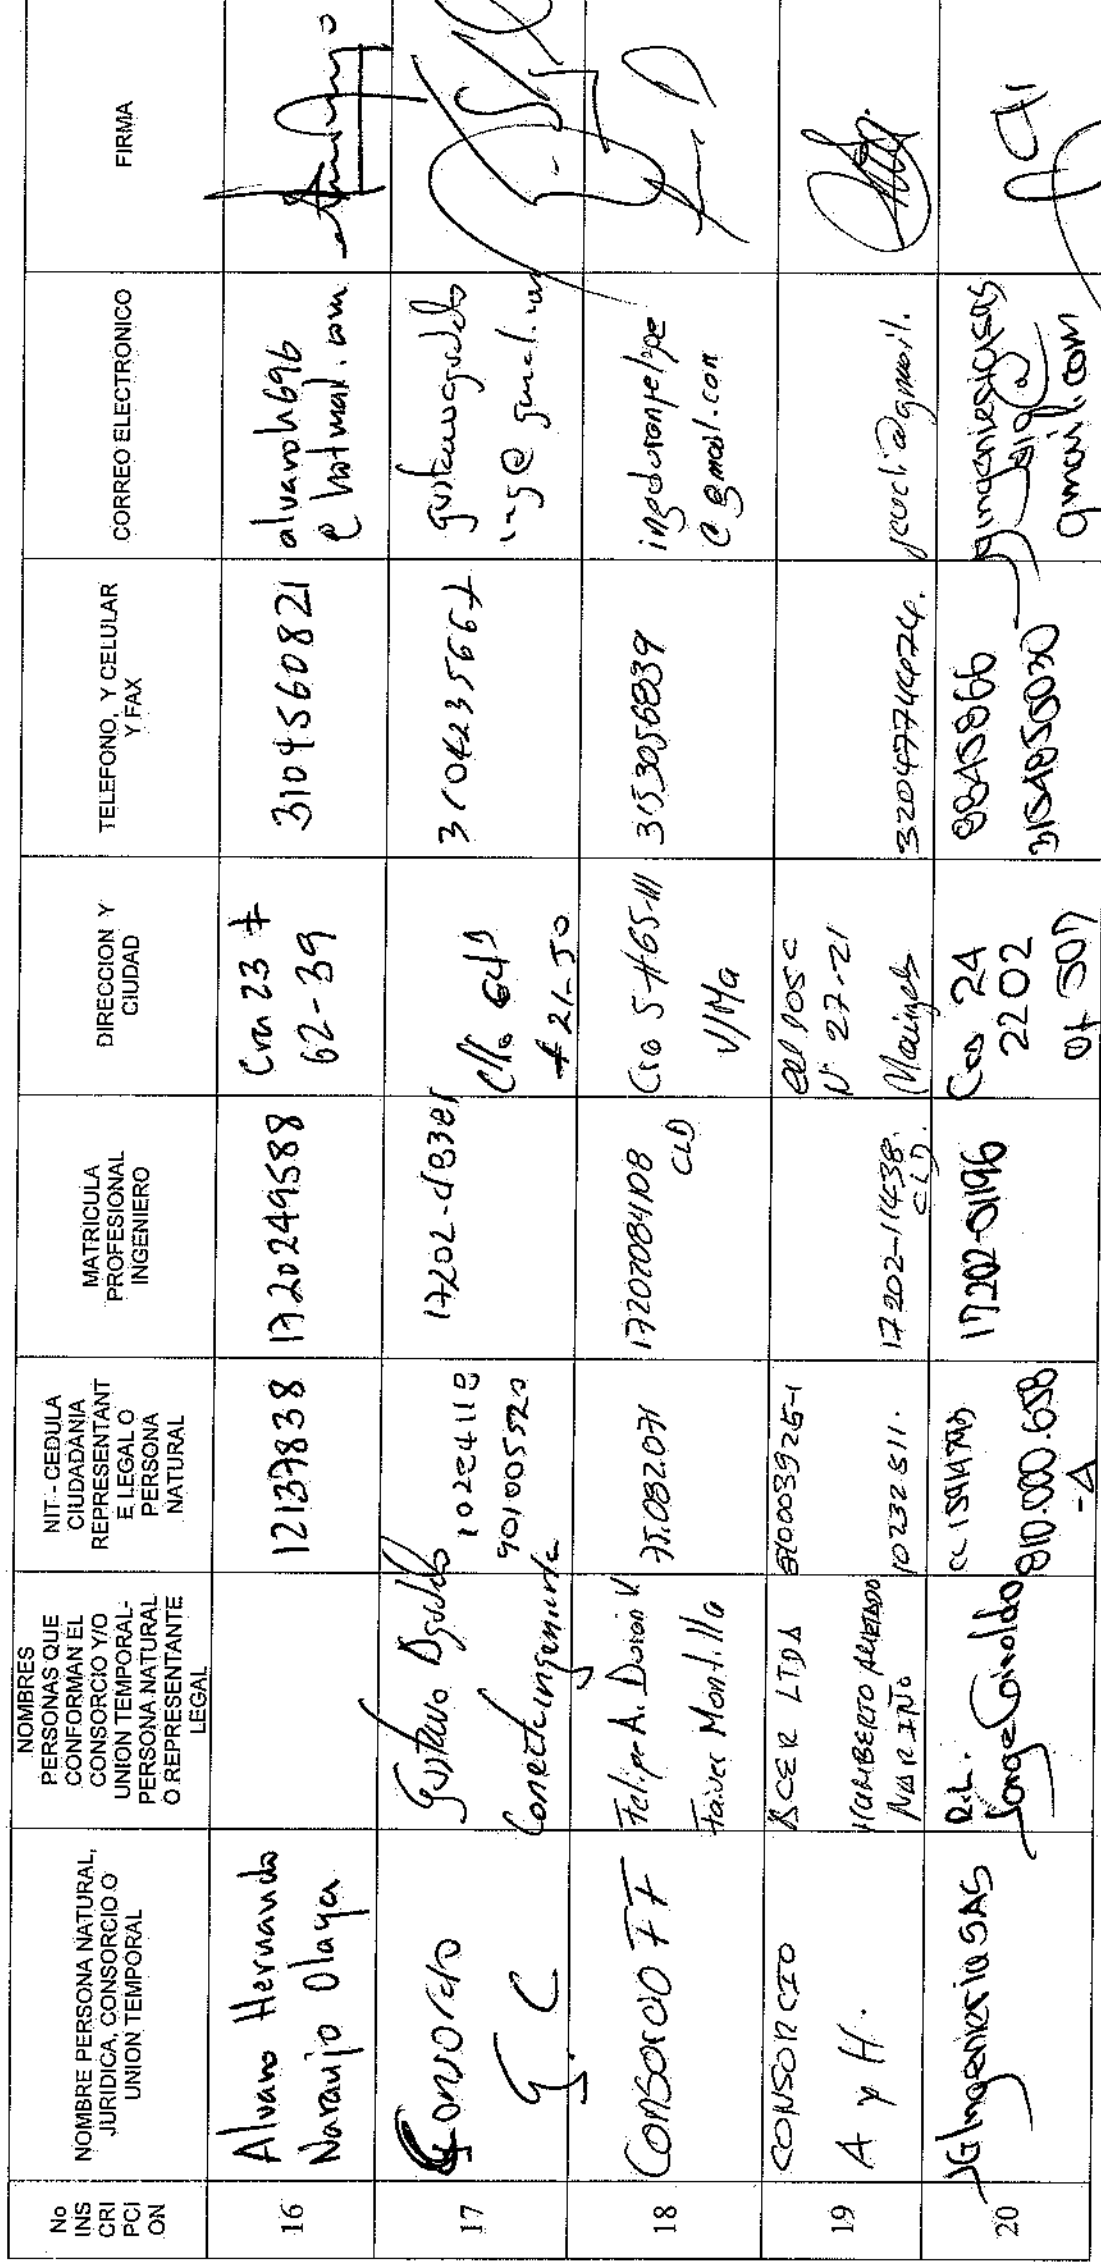 No
INS
CRI
PCI
ON
NOMBRE PERSONA NATURAL,
JURIDICA, CONSORCIO O
UNION TEMPORAL
NOMBRES
PERSONAS QUE
CONFORMAN EL
CONSORCIO Y/O
UNION TEMPORAL-
PERSONA NATURAL
O REPRESENTANTE
LEGAL
NIT - CEDULA
CIUDADANIA
REPRESENTANT
E LEGAL O
PERSONA
NATURAL
MATRICULA
PROFESIONAL
INGENIERO
DIRECCION Y
CIUDAD
TELEFONO, Y CELULAR
Y FAX
CORREO ELECTRONICO
FIRMA
16
Alvaro Hernando
Naranjo Olaya
12137838
1720249588
Cra 23 #
62-39
3104560821
alvaroh696
@ hotmail.com
17
Consorcio
G. C
Gustavo Agudelo
Conectaingenieria
901005520
17202-
Clle 64 D
# 21-50
3104235667
gustavoagudelo
ing@gmail.com
18
Consorcio FF
Felipe A. Duran V
Faiver Montilla
75.082.071
1720708410B
CLD
Cra 5 #65-111
V/Ma
3153056839
ingduranfelipe
@gmail.com
19
CONSORCIO
A y H.
ACER LTDA
HARIBERTO
NARIÑO
810003925-1
10232511.
17202-11438.
CLD.
N° 27-21
Manizales
3204774474.
@gmail.
20
JG Ingenieria SAS
R.L.
Jorge Giraldo
810.000.658
17202-01196
Cra 24
22 02
Of 507
8845866
3154850030
gmail.com